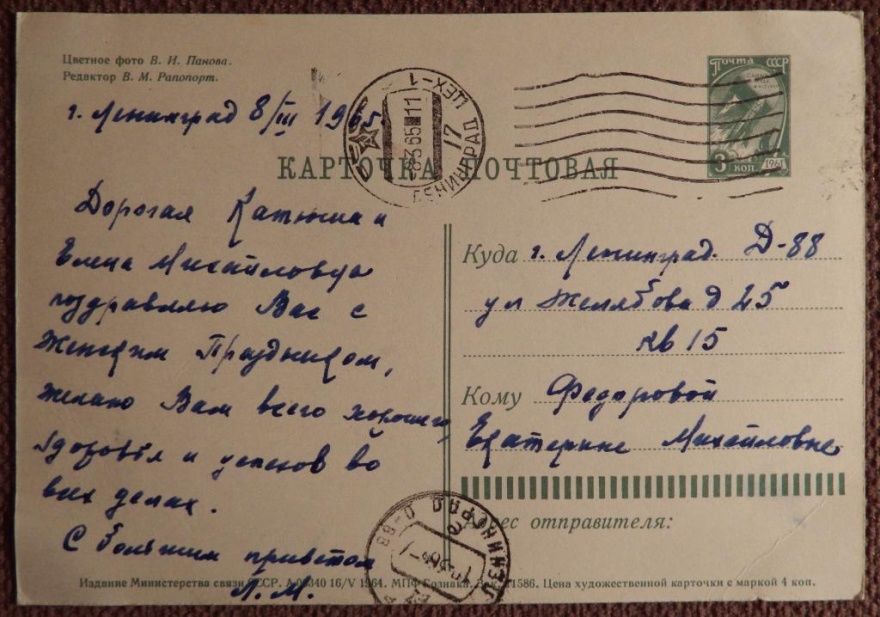 Цветное фото В. И. Панова.
Редактор В. М. Рапопорт.
Почта СССР
3 коп 1961
г. Ленинград 8/III 1965.
ЛЕНИНГРАД 17 ЦЕХ-1
-8365 11
КАРТОЧКА ПОЧТОВАЯ
Дорогая Катюша и
Елена Михайловна
поздравляю Вас с
Женским Праздником,
желаю Вам всего хорошего,
здоровья и успехов во
всех делах.
С большим приветом
Л. М.
Куда г. Ленинград. Д-88
ул Желябова д 25
кв 15
Кому Федоровой
Екатерине Михайловне
Адрес отправителя:
ЛЕНИНГРАД Д-88
Издание Министерства связи СССР. 16/V 1964. МПФ Гознака. Зак. 1586. Цена художественной карточки с маркой 4 коп.